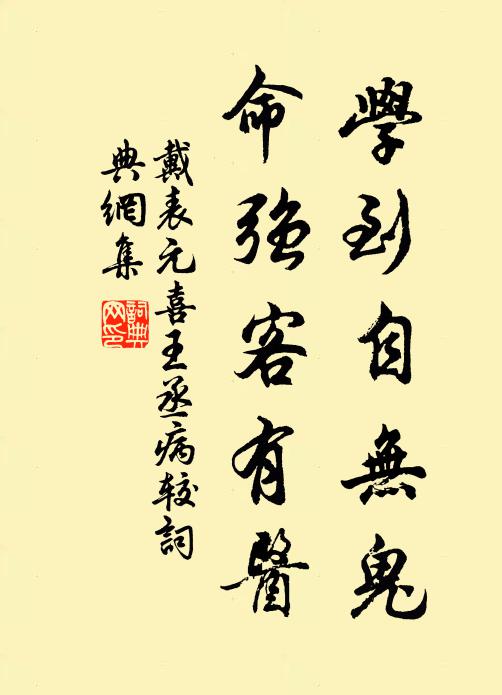 學到自無鬼
命強客有醫
戴表元喜王丞病較詞
典網集
詞典
网印